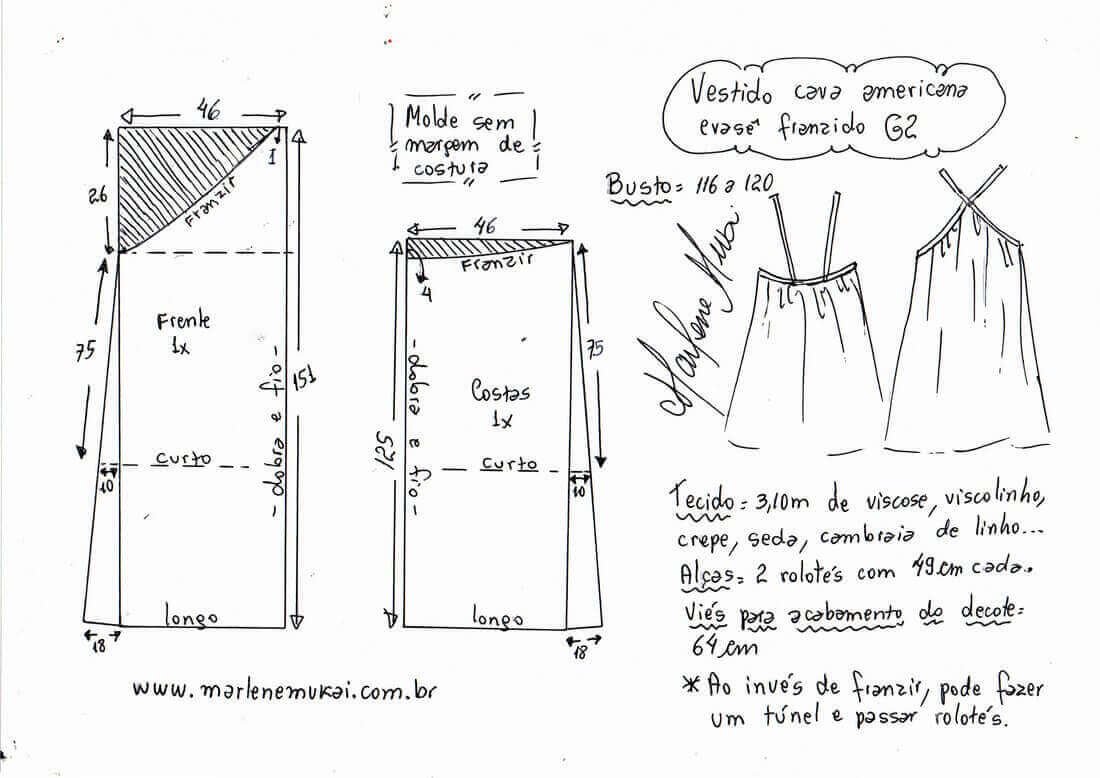 46
1
26
Franzir
Frente
1x
75
151
- dobra e fio -
curto
10
longo
18
www.marlenemukai.com.br
Molde sem
margem de
costura
46
Franzir
4
75
125
- dobra e fio -
Costas
1x
curto
10
longo
18
Vestido cava americana
evasê franzido G2
Busto = 116 a 120
Marlene Mukai
Tecido = 3,10m de viscose, viscolinho,
crepe, seda, cambraia de linho...
Alças = 2 rolotés com 49cm cada.
Viés para acabamento do decote =
64cm
* Ao invés de franzir, pode fazer
um túnel e passar rolotés.